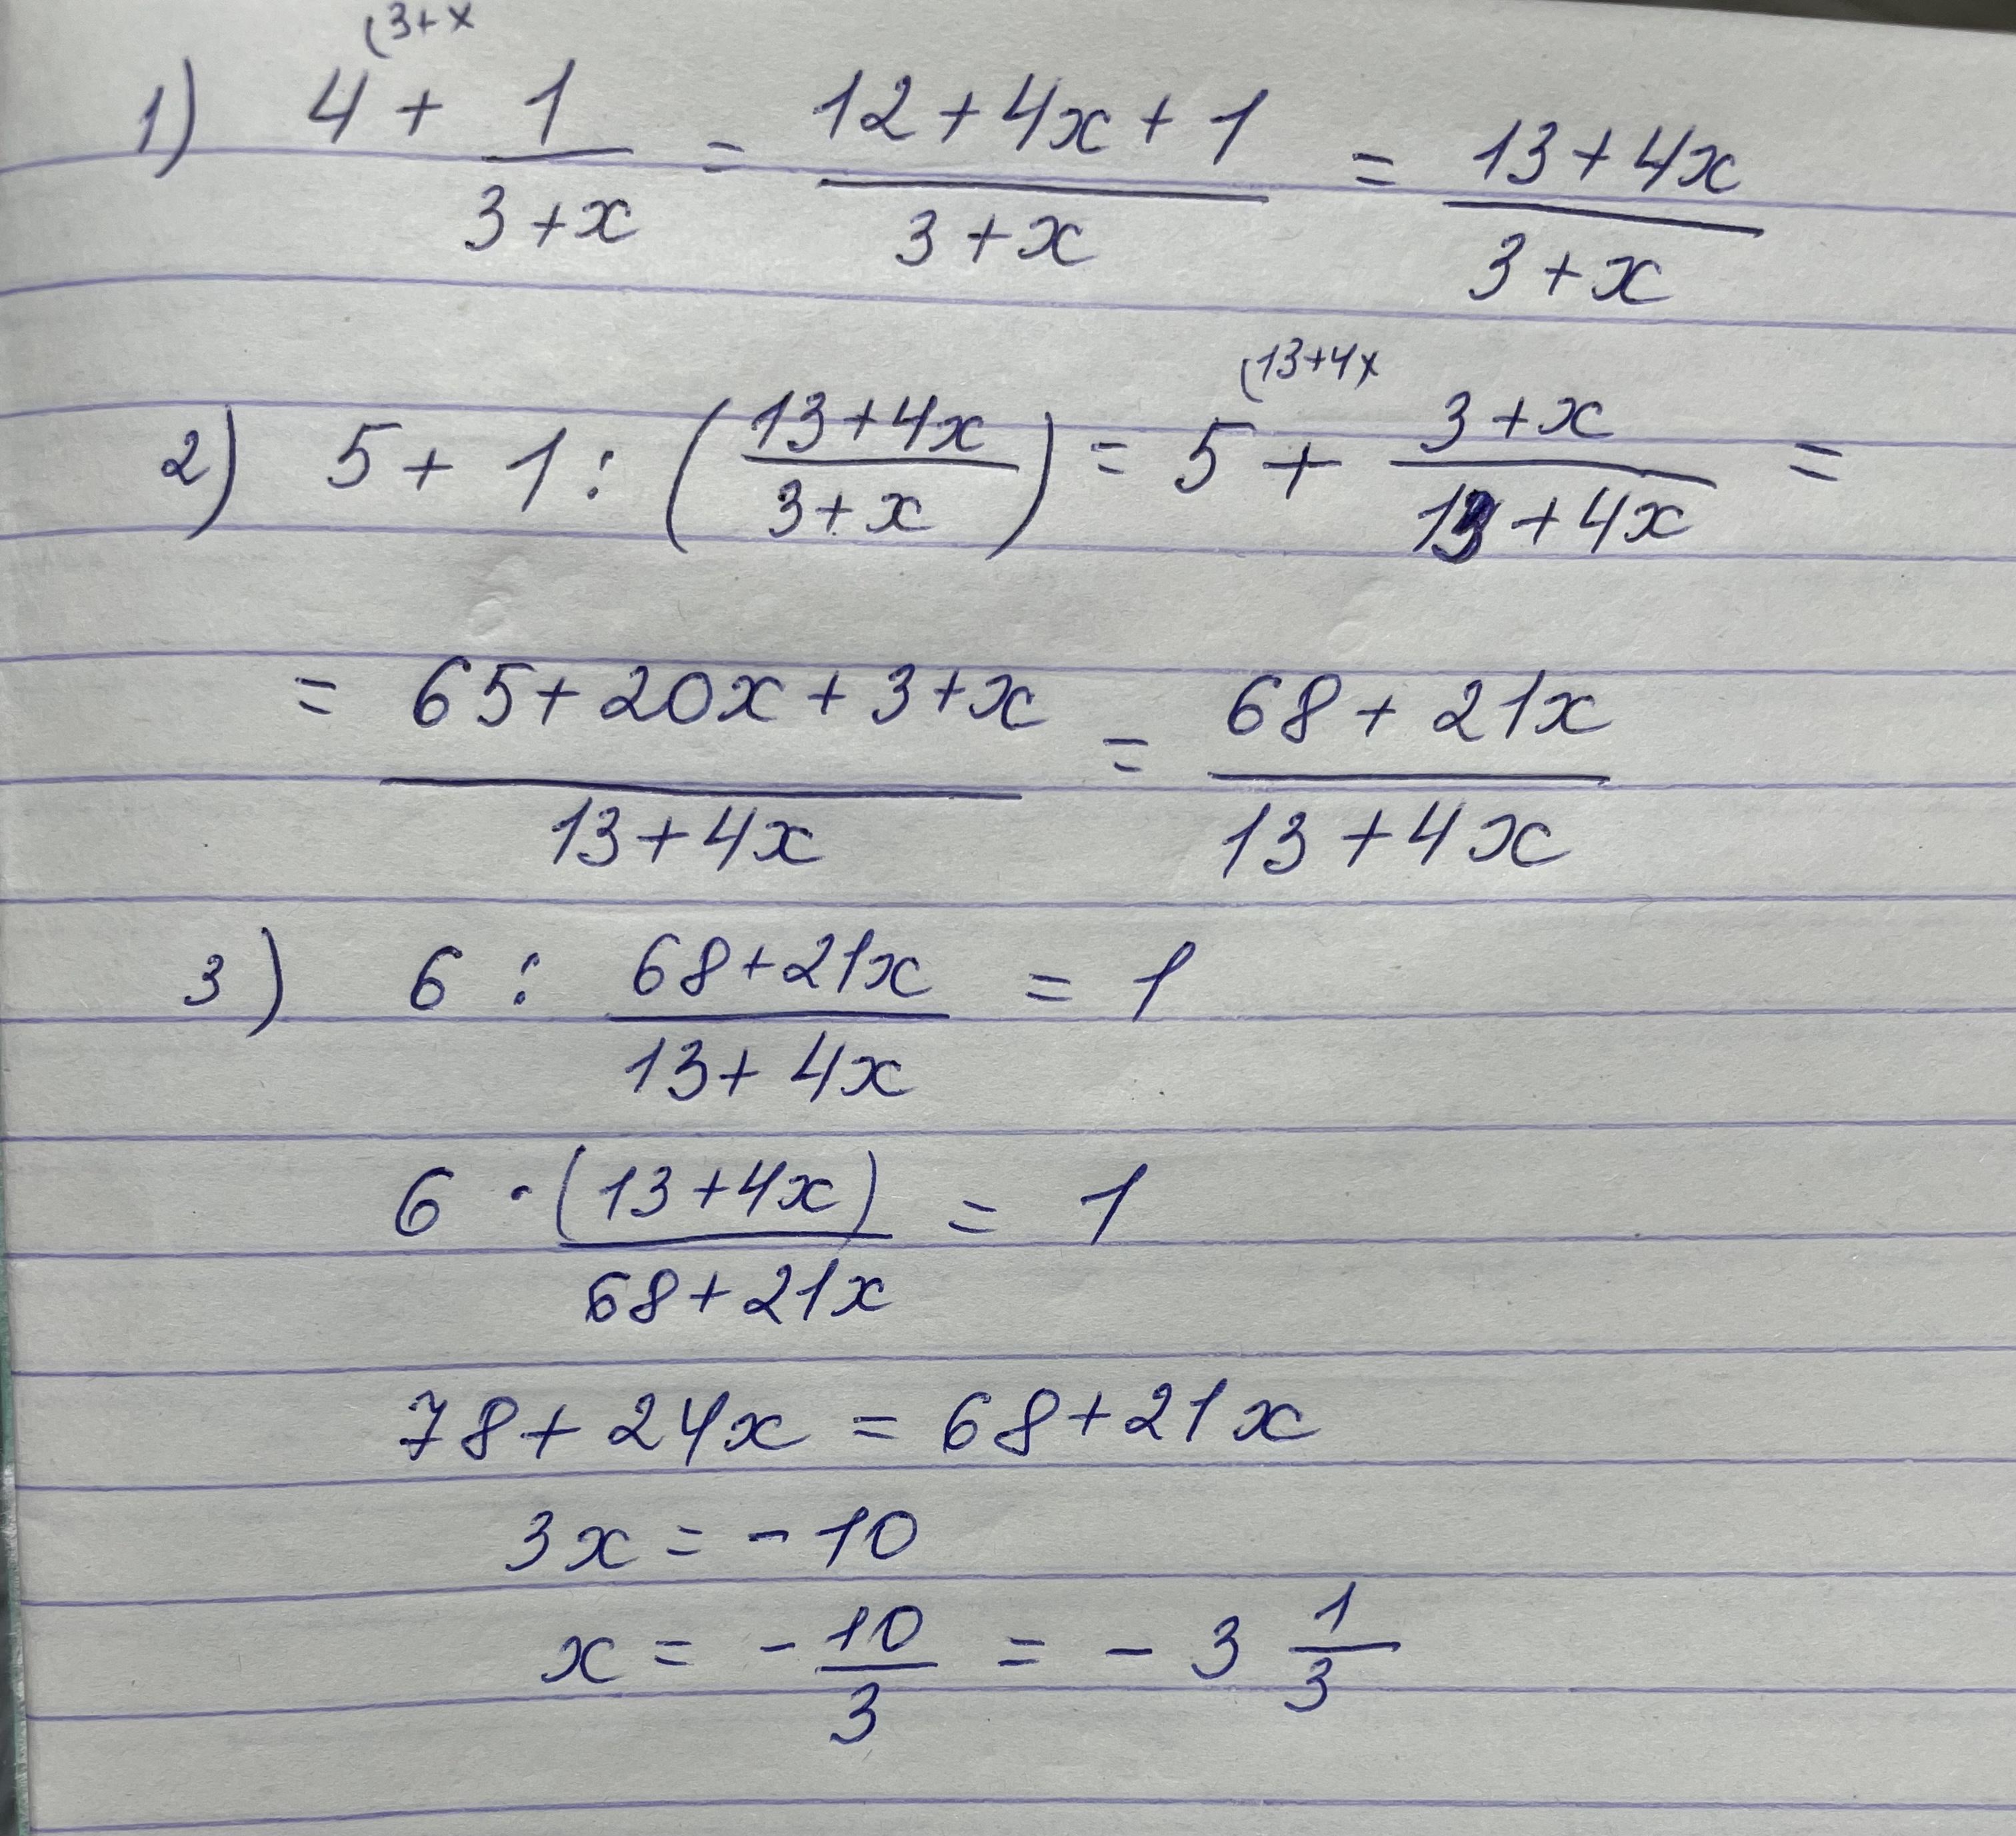 (3+x
1) 4 + 1/(3+x) = (12+4x+1)/(3+x) = (13+4x)/(3+x)
(13+4x
2) 5 + 1 : ((13+4x)/(3+x)) = 5 + (3+x)/(13+4x) =
= (65+20x+3+x)/(13+4x) = (68+21x)/(13+4x)
3) 6 : (68+21x)/(13+4x) = 1
6 · (13+4x)/(68+21x) = 1
78+24x = 68+21x
3x = -10
x = -10/3 = -3 1/3